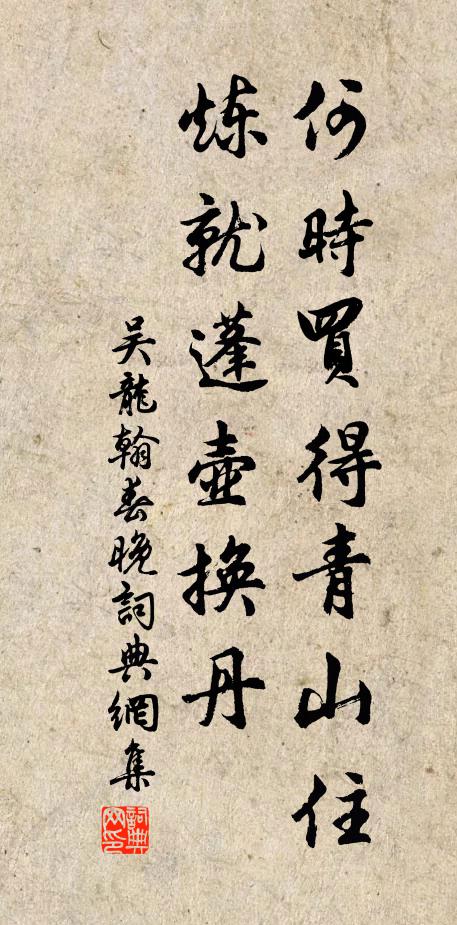 何時買得青山住
炼就蓬壺換丹
吴龍翰春晚詞典網集
詞典网印